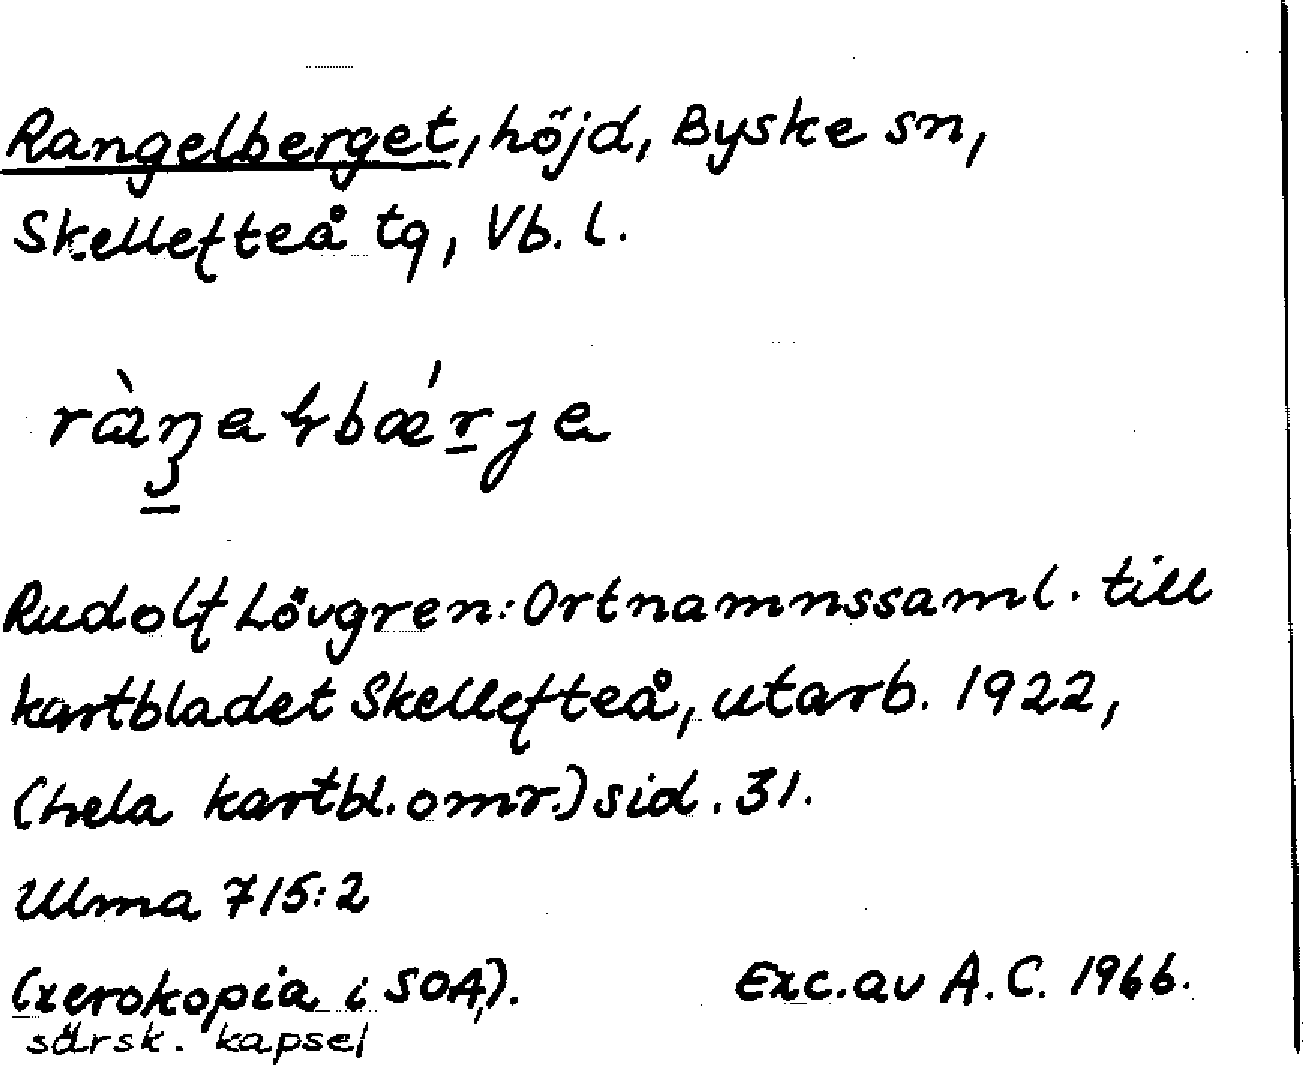 Rangelberget, höjd, Byske sn,
Skellefteå tg, Vb. l.
Rudolf Lövgren: Ortnamnssaml. till
kartbladet Skellefteå, utarb. 1922,
(hela kartbl. omr.) sid. 31.
Ulma 715:2
(xerokopia i SOA). Exc. av A. C. 1966.
särsk. kapsel